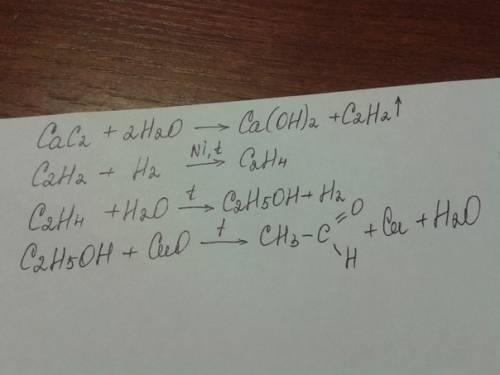 CaC2 + 2H2O → Ca(OH)2 + C2H2↑
C2H2 + H2 Ni, t → C2H4
C2H4 + H2O t → C2H5OH + H2
C2H5OH + CuO t → CH3-C=O + Cu + H2O
H